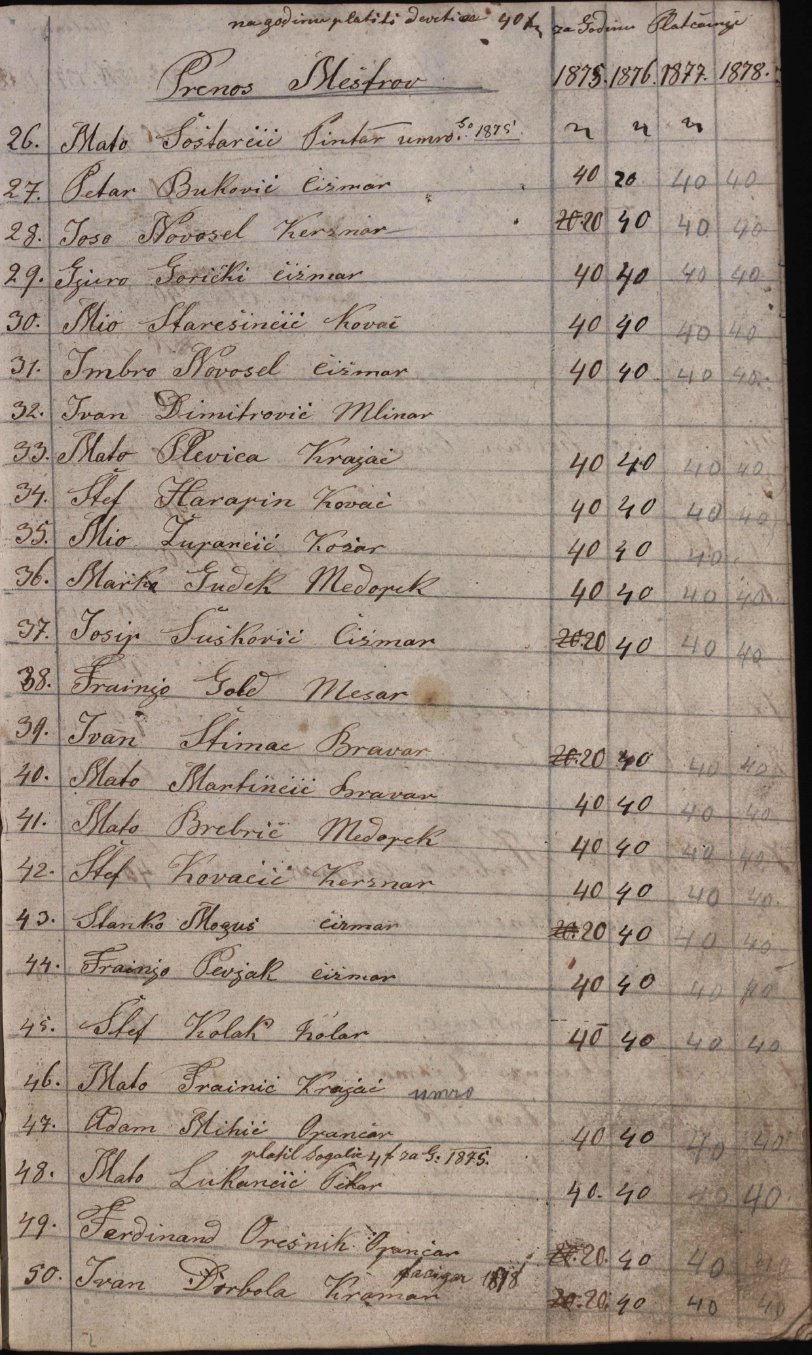 na godinu platiti devetice 40 za Godinu Plaćanje
Prenos Meštrov 1875. 1876. 1877. 1878.
26. Mato Šoštarčić Pintar umro. 1875
27. Petar Buković čižmar 40 20 40 40
28. Joso Novosel Kersnar 20. 20 40 40 40
29. Gjuro Gorički čižmar 40 40 40 40
30. Mio Starešinčić Kovač 40 40 40 40
31. Imbro Novosel čižmar 40 40 40 40
32. Ivan Dimitrović Mlinar
33. Mato Plevica Krajač 40 40 40 40
34. Štef Harapin Kovač 40 40 40 40
35. Mio Župančić Košar 40 40 40
36. Marko Gudek Medopek 40 40 40 40
37. Josip Šušković Čižmar 20. 20 40 40 40
38. Frainjo Gold Mesar
39. Ivan Štimac Bravar 20. 20 40 40 40
40. Mato Martinčić bravar 40 40 40 40
41. Mato Brebrić Medopek 40 40 40 40
42. Štef Kovačić Kersnar 40 40 40 40
43. Stanko Moguš čižmar 20. 20 40 40 40
44. Frainjo Pevjak čižmar 40 40 40 40
45. Štef Kolak Kolar 40 40 40 40
46. Mato Frainić Krajač umro
47. Adam Mihić Opančar 40 40 40 40
platil 4 f za G: 1875.
48. Mato Lukančić Pekar 40. 40 40 40
49. Ferdinand Orešnik Opančar 20. 20. 40 40 40
1878
50. Ivan Dorbola Kramar 20. 20. 40 40 40